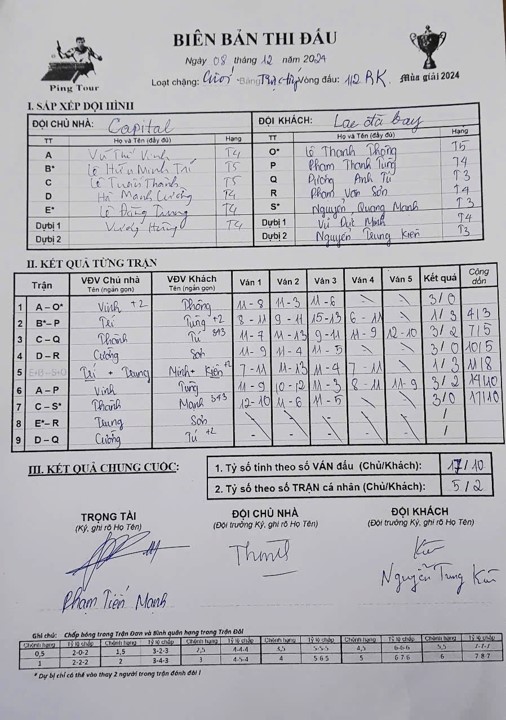 Ping Tour
BIÊN BẢN THI ĐẤU
Ngày 08 tháng 12 năm 2024
Loạt chặng: Cuối *Bảng: Trực tiếp Vòng đấu: 1/2 RK.
Mùa giải 2024
I. SẮP XẾP ĐỘI HÌNH
ĐỘI CHỦ NHÀ: Capital ĐỘI KHÁCH: Lae ota bay
TT Họ và Tên (đầy đủ) Hạng TT Họ và Tên (đầy đủ) Hạng
A Vũ Thế Vinh T4 O* Lê Thanh Thông T5
B* Lê Hữu Minh Trí T5 P Phạm Thanh Tùng T4
C Lê Tuấn Thành T5 Q Dương Anh Tú T3
D Hà Mạnh Cường T4 R Phạm Văn Sơn T4
E* Lê Đăng Trung T4 S* Nguyễn Quang Mạnh T3
Dự bị 1 Vương Hùng T4 Dự bị 1 Vũ Đức Minh T4
Dự bị 2 Dự bị 2 Nguyễn Trung Kiên T3
II. KẾT QUẢ TỪNG TRẬN
Trận VĐV Chủ nhà VĐV Khách Ván 1 Ván 2 Ván 3 Ván 4 Ván 5 Kết quả Cộng dồn
Tên (ngắn gọn) Tên (ngắn gọn)
1 A – O* Vinh +2 Thông 11 - 8 11 - 3 11 - 6 \ \ 3/0
2 B* – P Trí Tùng +2 8 - 11 9 - 11 15-13 6 - 11 \ 1/3 4/3
3 C – Q Thành Tú 11 - 7 11-13 9 - 11 11 - 9 12 - 10 3/2 7/5
4 D – R Cường Sơn 11 - 9 11 - 4 11 - 5 \ \ 3/0 10/5
5 Trí + Trung Minh + Kiên 7 - 11 11-13 11 - 4 7 - 11 \ 1/3 11/8
6 A – P Vinh Tùng 11 - 9 10-12 11 - 3 8 - 11 11 - 9 3/2 14/10
7 C – S* Thành Mạnh 12-10 11 - 6 11 - 5 \ \ 3/0 17/10
8 E* – R Trung Sơn - - - \ \ /
9 D – Q Cường Tú +2 - - - \ \ /
III. KẾT QUẢ CHUNG CUỘC:
1. Tỷ số tính theo số VÁN đấu (Chủ/Khách): 17/10
2. Tỷ số theo số TRẬN cá nhân (Chủ/Khách): 5/2
TRỌNG TÀI ĐỘI CHỦ NHÀ ĐỘI KHÁCH
(Ký, ghi rõ Họ Tên) (Đội trưởng Ký, ghi rõ Họ Tên) (Đội trưởng Ký, ghi rõ Họ Tên)
Phạm Tiến Mạnh
Nguyễn Trung Kiên
Ghi chú: Chấp bóng trong Trận Đơn và Bình quân hạng trong Trận Đôi
Chênh hạng Tỷ lệ chấp Chênh hạng Tỷ lệ chấp Chênh hạng Tỷ lệ chấp Chênh hạng Tỷ lệ chấp Chênh hạng Tỷ lệ chấp Chênh hạng Tỷ lệ chấp
0,5 2-0-2 1,5 3-2-3 2,5 4-4-4 3,5 5-5-5 4,5 6-6-6 5,5 7-7-7
1 2-2-2 2 3-4-3 3 4-5-4 4 5-6-5 5 6-7-6 6 7-8-7
* Dự bị chỉ có thể vào thay 2 người trong trận đánh đôi !